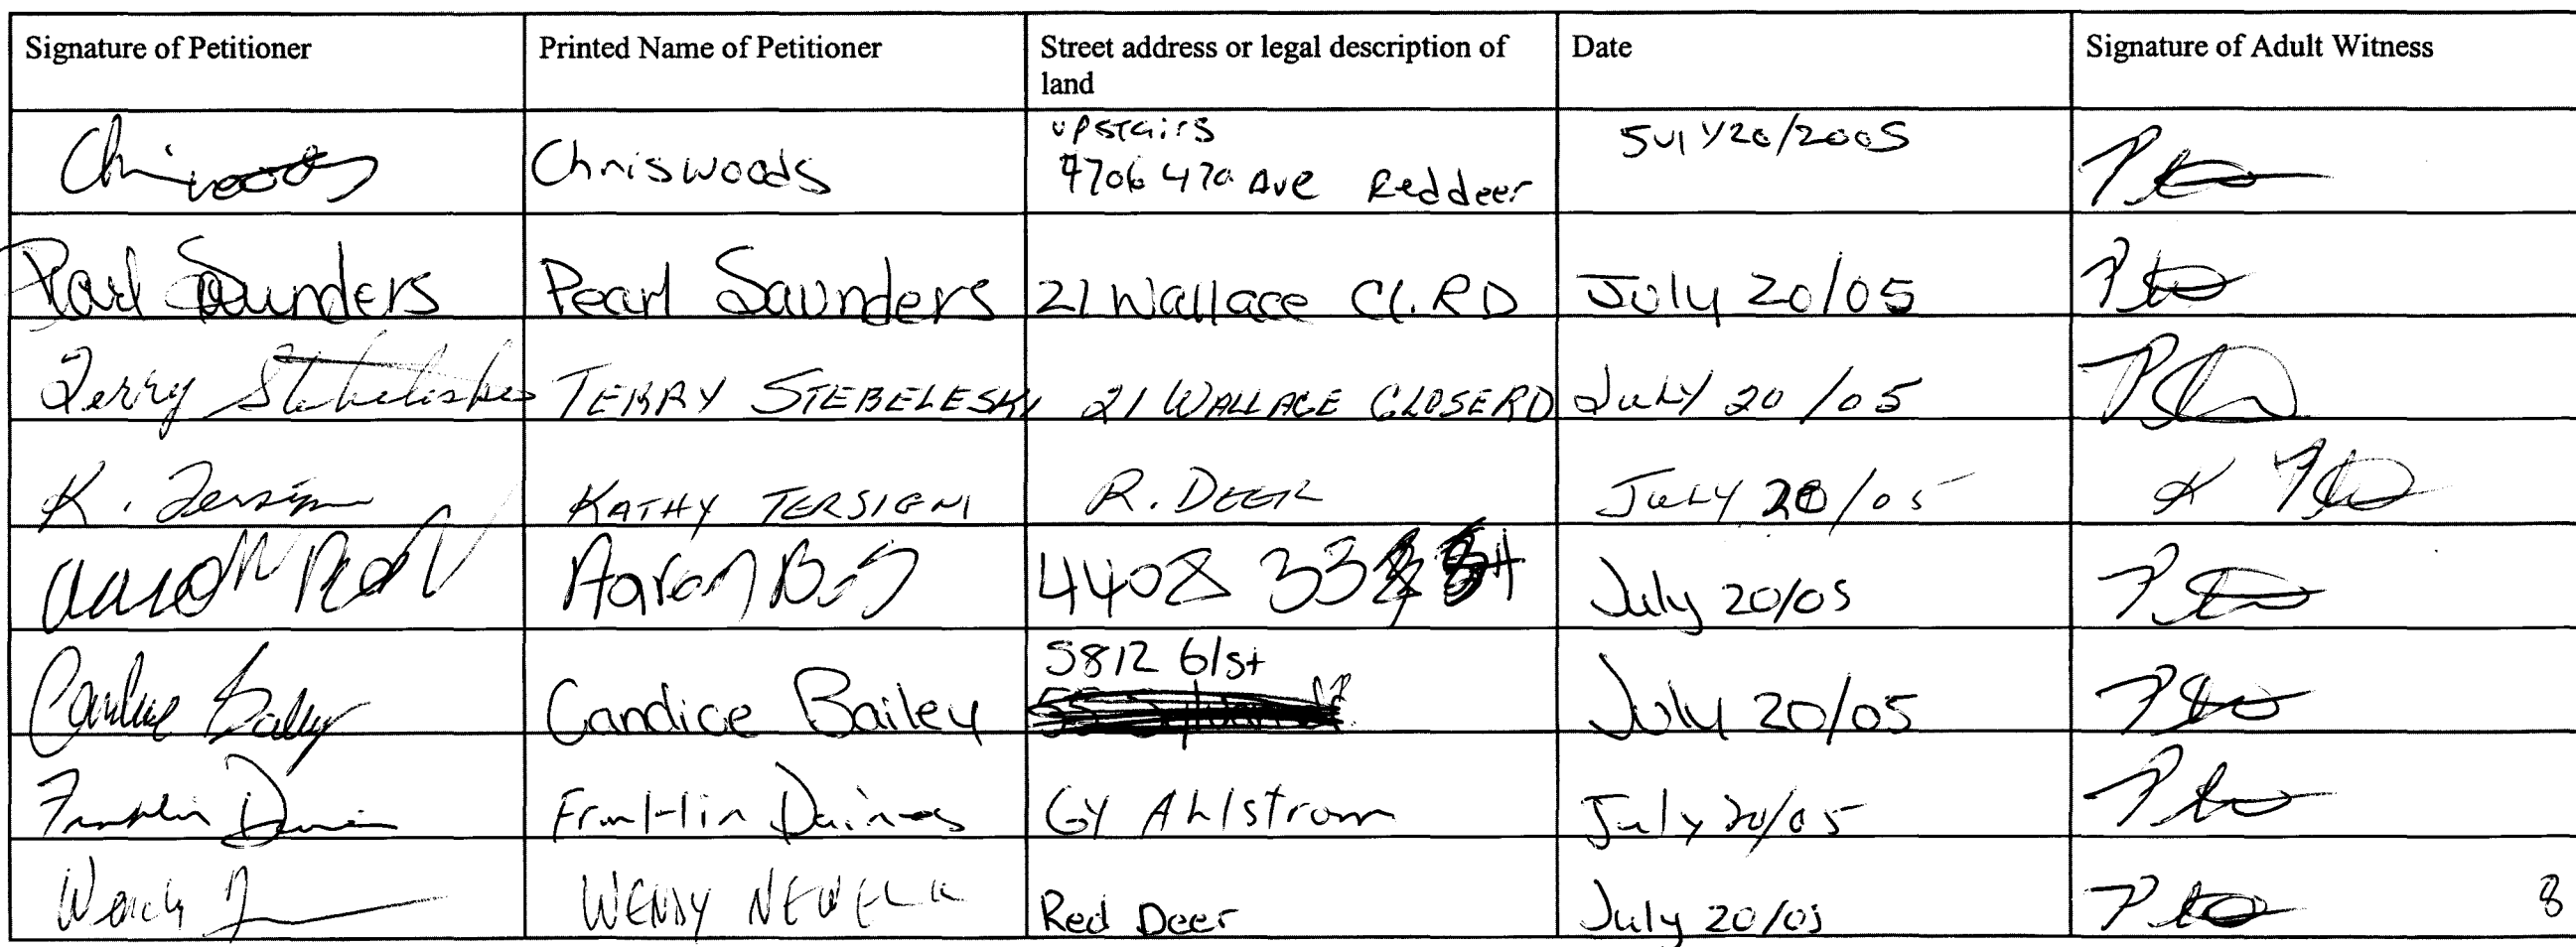 Signature of Petitioner
Printed Name of Petitioner
Street address or legal description of
land
Date
Signature of Adult Witness
Chriswoods
upstairs
4706 47a Ave Reddeer
July20/2005
Pearl Saunders
Pearl Saunders
21 Wallace Cl. RD
July 20/05
Terry Stebeleski
TERRY STEBELESKI
21 WALLACE CLOSE RD
July 20/05
K. Tersigni
KATHY TERSIGNI
R. DEER
July 20/05
Aaron
4408 33
July 20/05
Candice Bailey
Candice Bailey
5812 61st
July 20/05
Franklin
Franklin Daines
64 Ahlstrom
July 20/05
Wendy
WENDY NEWELL
Red Deer
July 20/05
8